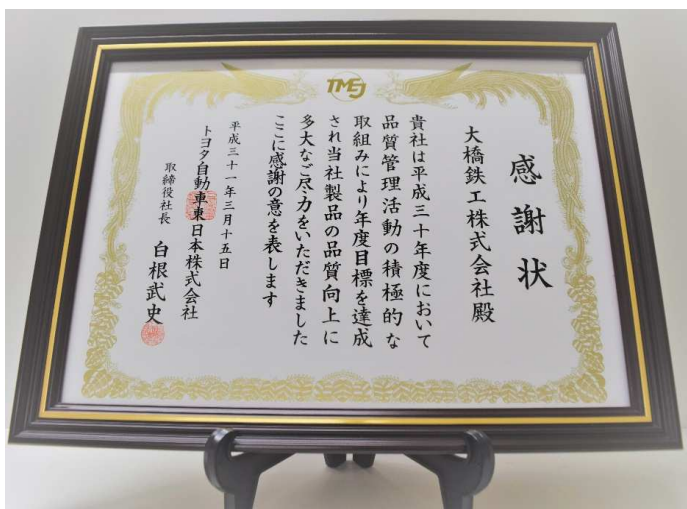 TMEJ
感謝状
大橋鉄工株式会社殿
貴社は平成三十年度において
品質管理活動の積極的な
取組みにより年度目標を達成
され当社製品の品質向上に
多大なご尽力をいただきました
ここに感謝の意を表します
平成三十一年三月十五日
トヨタ自動車東日本株式会社
取締役社長 白根武史